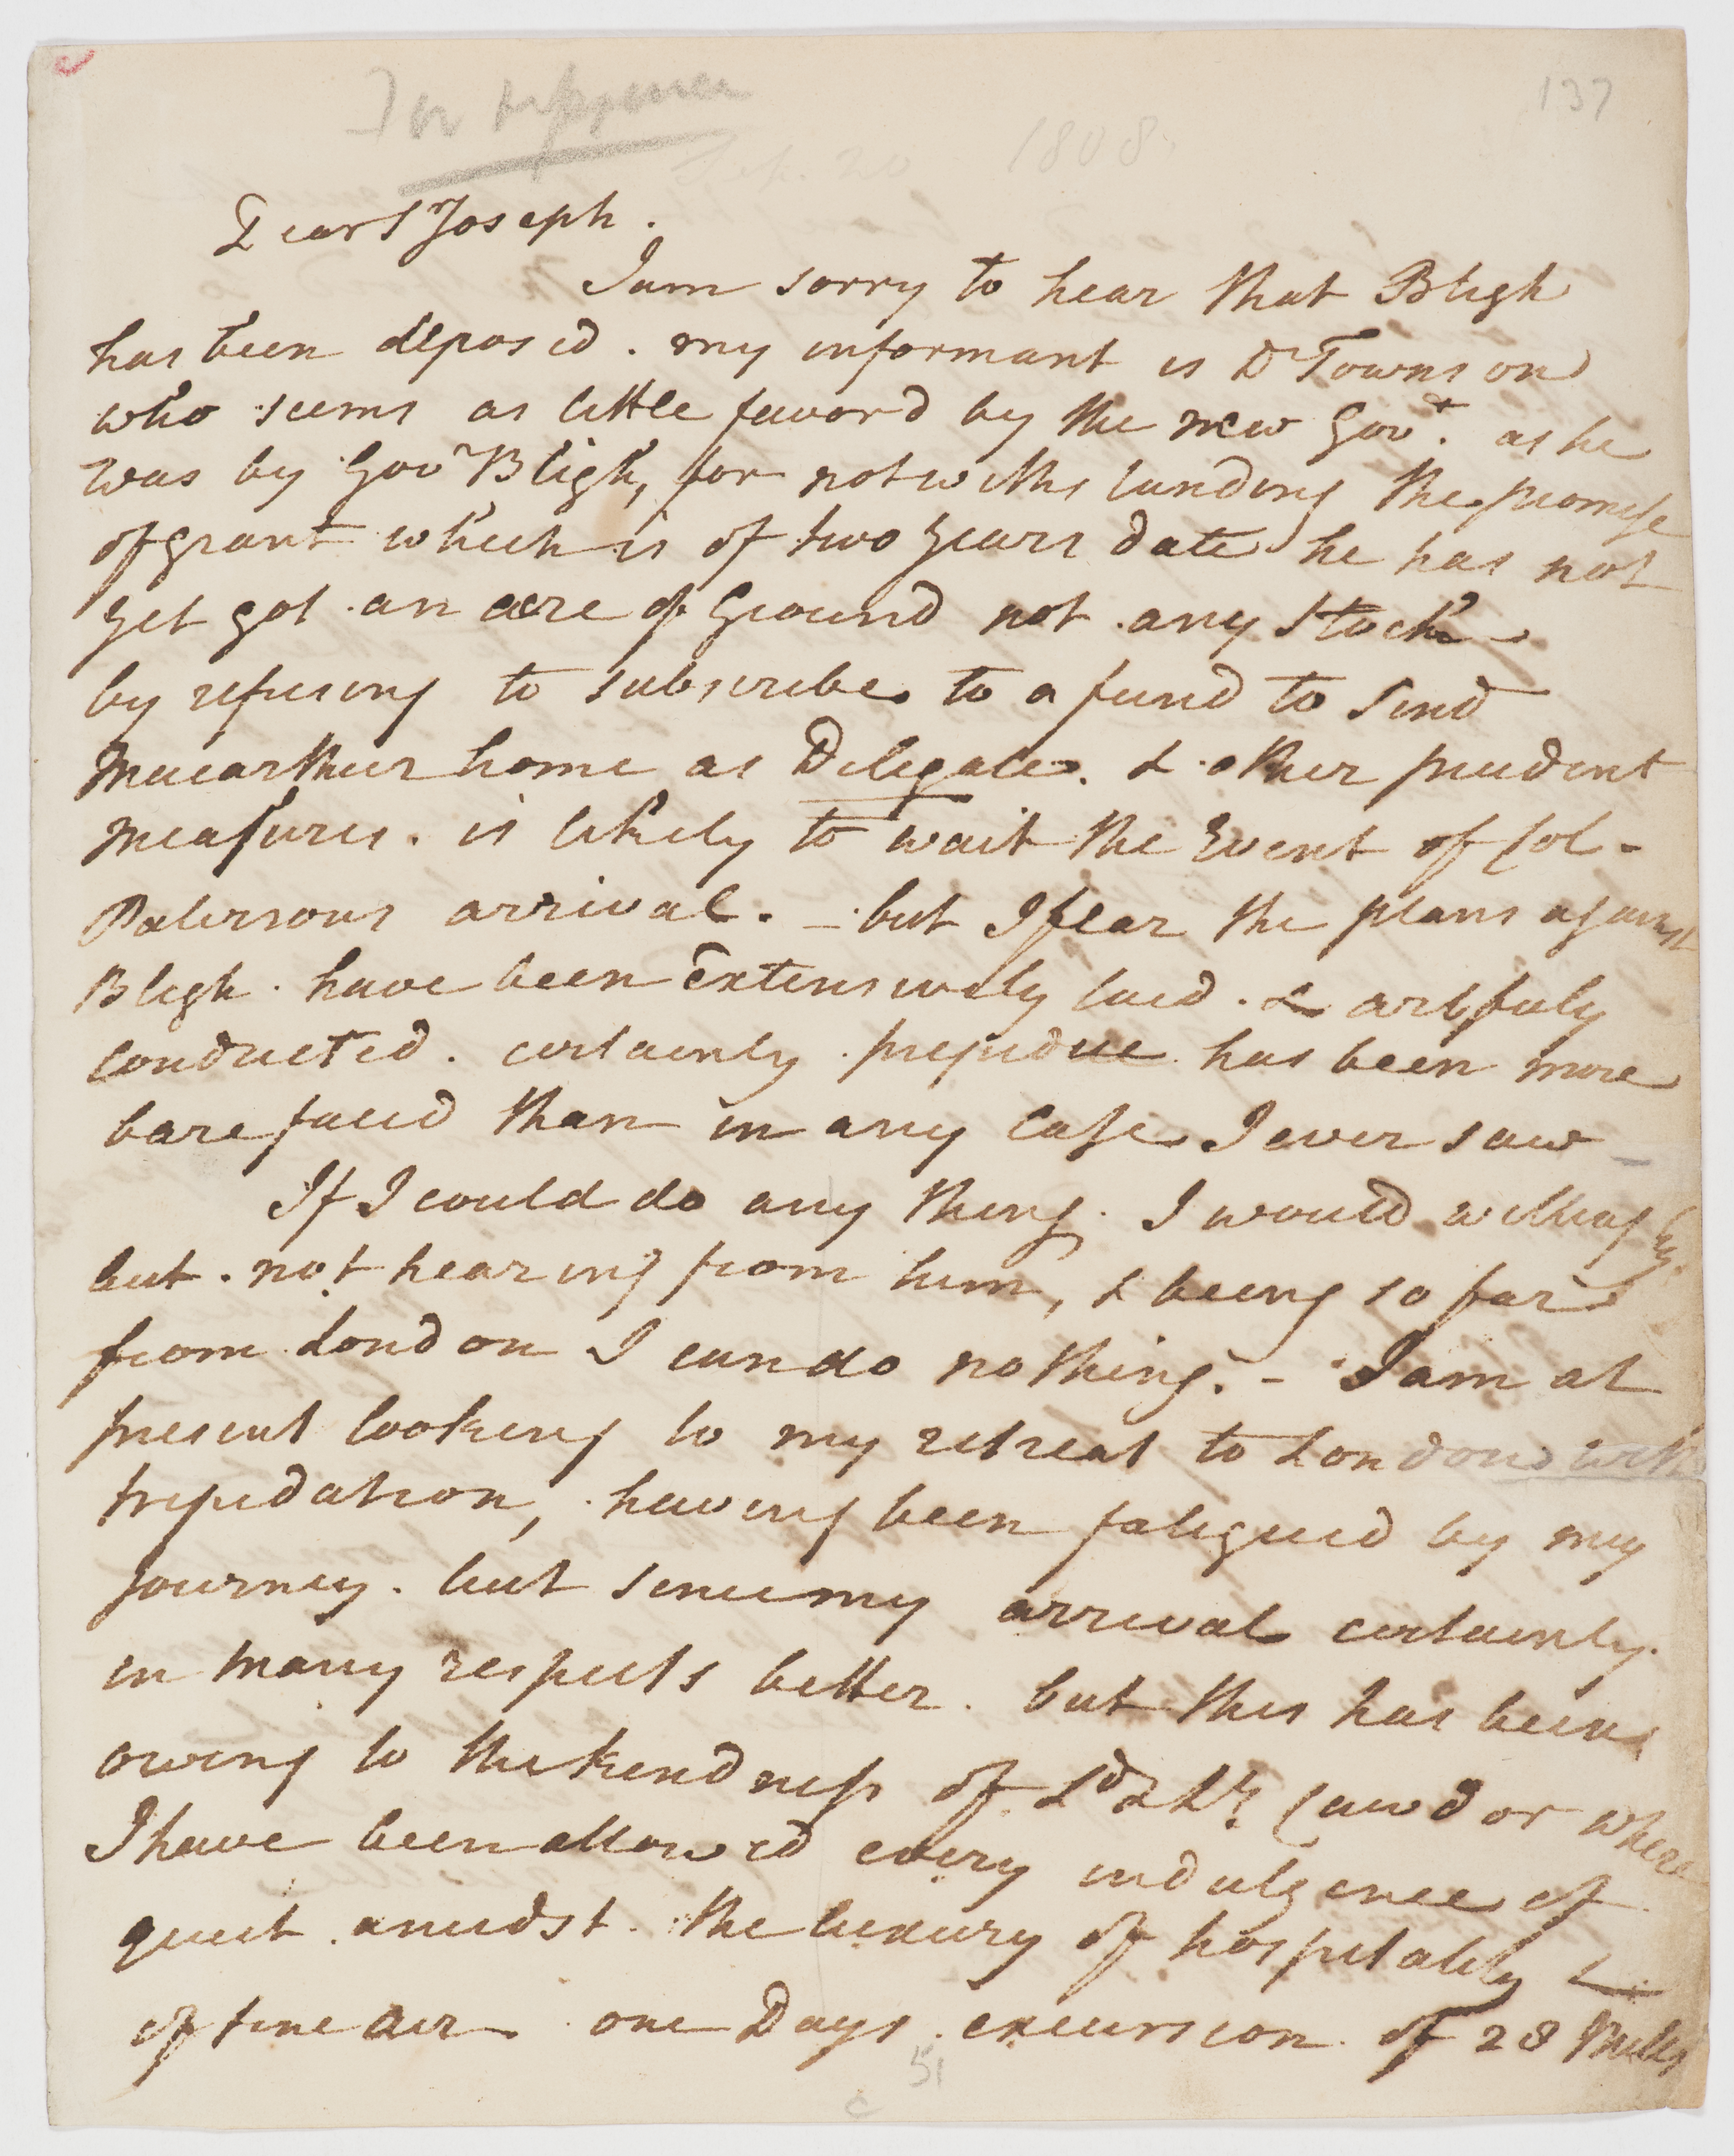 137
Sep. 20 1808
Dear Sr Joseph.
I am sorry to hear that Bligh
has been deposed. my informant is Dr Townson
who seems as little favord by the new Govt. as he
was by Govr Bligh, for notwithstanding the promise
of grant which is of two years date he has not
yet got an acre of Ground not any Stock -
by refusing to subscribe to a fund to send
Macarthur home as Delegate. & other prudent
measures. is likely to wait the Event of Col-
Patersons arrival. - but I fear the plans against
Bligh. have been Extensively laid. & artfuly
conducted. certainly prejudice has been more
barefaced than in any case I ever saw -
If I could do any thing. I would willingly.
but. not hearing from him, & being so far
from London I can do nothing. - I am at
present looking to my retreat to London with
trepidation, having been fatigued by my
Journey. but since my arrival certainly.
in many respects better. but this has been
owing to the kindness of Ld & Ly Cawdor where
I have been allowed every indulgence of
quiet amidst. the luxury of hospitality &
of fine air. one Days excursion of 28 Miles
51
c